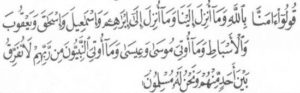 قُولُوٓا۟ ءَامَنَّا بِٱللَّهِ وَمَآ أُنزِلَ إِلَيْنَا وَمَآ أُنزِلَ إِلَىٰٓ إِبْرَٰهِـۧمَ وَإِسْمَٰعِيلَ وَإِسْحَٰقَ وَيَعْقُوبَ
وَٱلْأَسْبَاطِ وَمَآ أُوتِىَ مُوسَىٰ وَعِيسَىٰ وَمَآ أُوتِىَ ٱلنَّبِيُّونَ مِن رَّبِّهِمْ لَا نُفَرِّقُ
بَيْنَ أَحَدٍ مِّنْهُمْ وَنَحْنُ لَهُۥ مُسْلِمُونَ